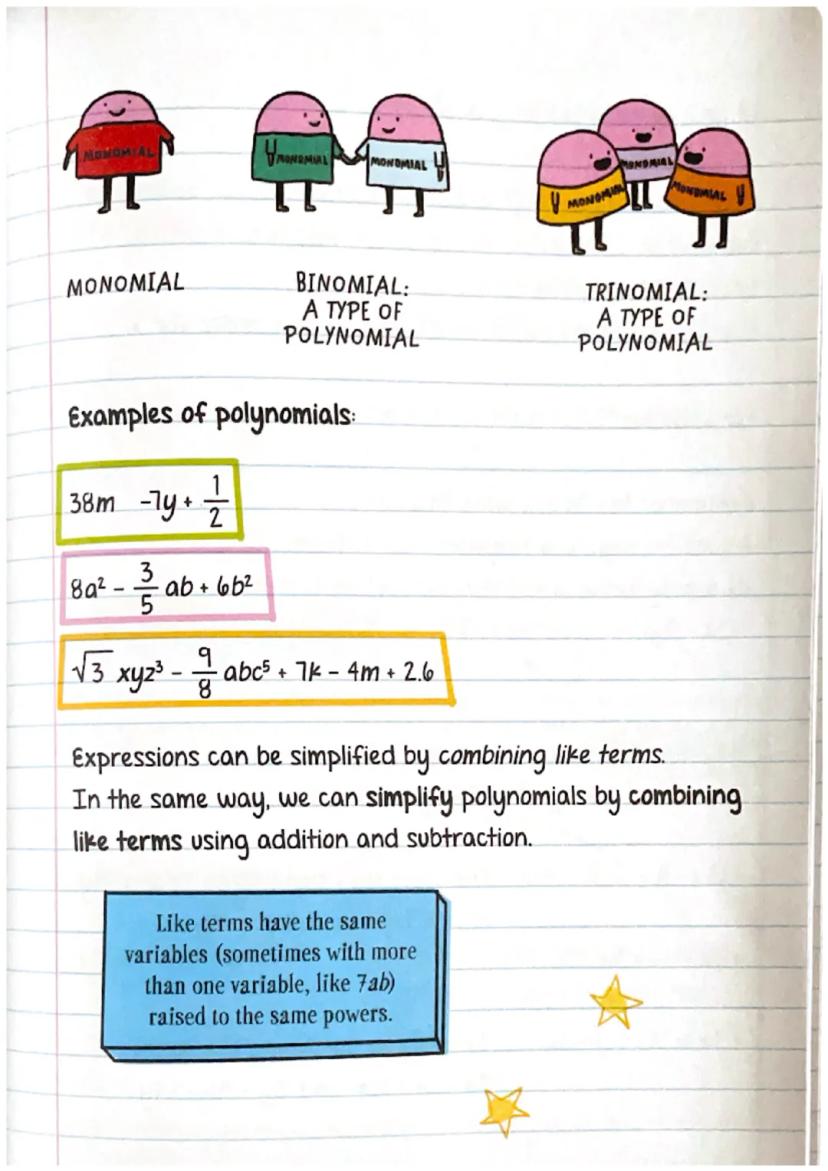 MONOMIAL
MONOMIAL MONOMIAL
MONOMIAL MONOMIAL MONOMIAL
MONOMIAL
BINOMIAL:
A TYPE OF
POLYNOMIAL
TRINOMIAL:
A TYPE OF
POLYNOMIAL
Examples of polynomials:
38m -7y + 1/2
8a² - 3/5 ab + 6b²
√3 xyz³ - 9/8 abc⁵ + 7k - 4m + 2.6
Expressions can be simplified by combining like terms.
In the same way, we can simplify polynomials by combining
like terms using addition and subtraction.
Like terms have the same
variables (sometimes with more
than one variable, like 7ab)
raised to the same powers.